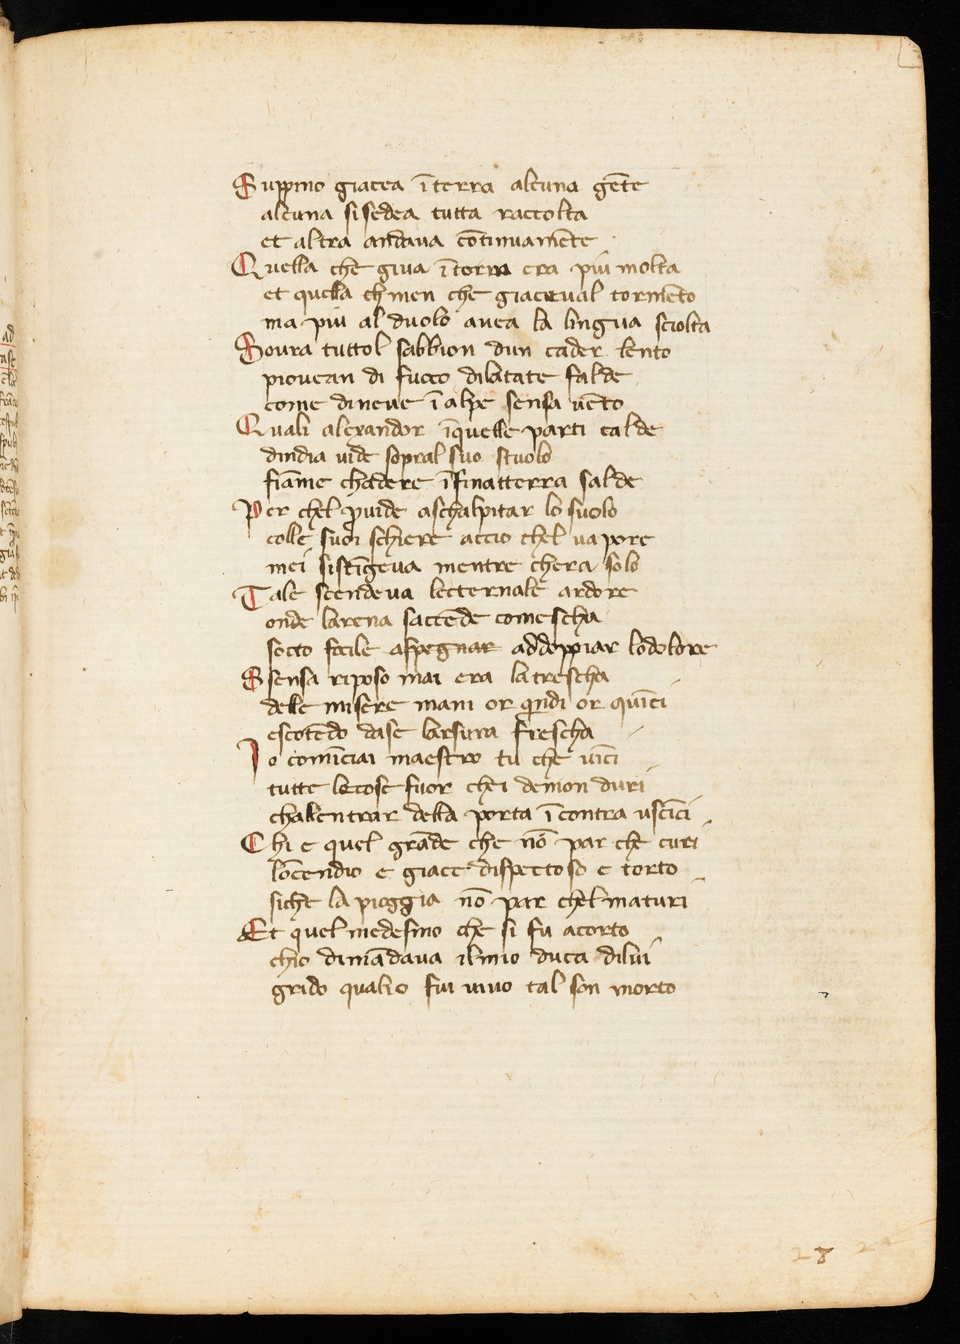 Suppino giacea ī terra alcuna gēte
alcuna si sedea tutta raccolta
et altra andaua cōtinuamēte
Quella che giua ī torno era piu molta
et quella th men che giaceual tormēto
ma piu al duolo auea la lingua sciolta
Soura tuttol sabbion dun cader lento
piouean di fuoco dilatate falde
come di neue ī alpe sensa uēto
Quali alexandor īquelle parti calde
dindia uide sopral suo stuolo
fiāme chadere īfinatterra salde
Per chel puide aschalpitar lo suolo
colle suoi schiere accio chel uapore
mei si stīgeua mentre chera solo
Tale scendeua lecternale ardore
onde larena saccēde come scha
socto focile aspegnar addoppiar lo dolore
E sensa riposo mai era la trescha
delle misere mani or qndi or quīci
escotēdo dase larsura frescha
Io comīciai maestro tu che uīci
tutte le cose fuor che i demon duri
challentrar della porta ī contra uscīci
Chi e quel grāde che nō par che curi
lōcendio e giace dispettoso e torto
siche la pioggia nō par chel maturi
Et quel medesmo che si fu acorto
chio dimādaua il mio duca di lui
grido qual io fui uiuo tal son morto
28